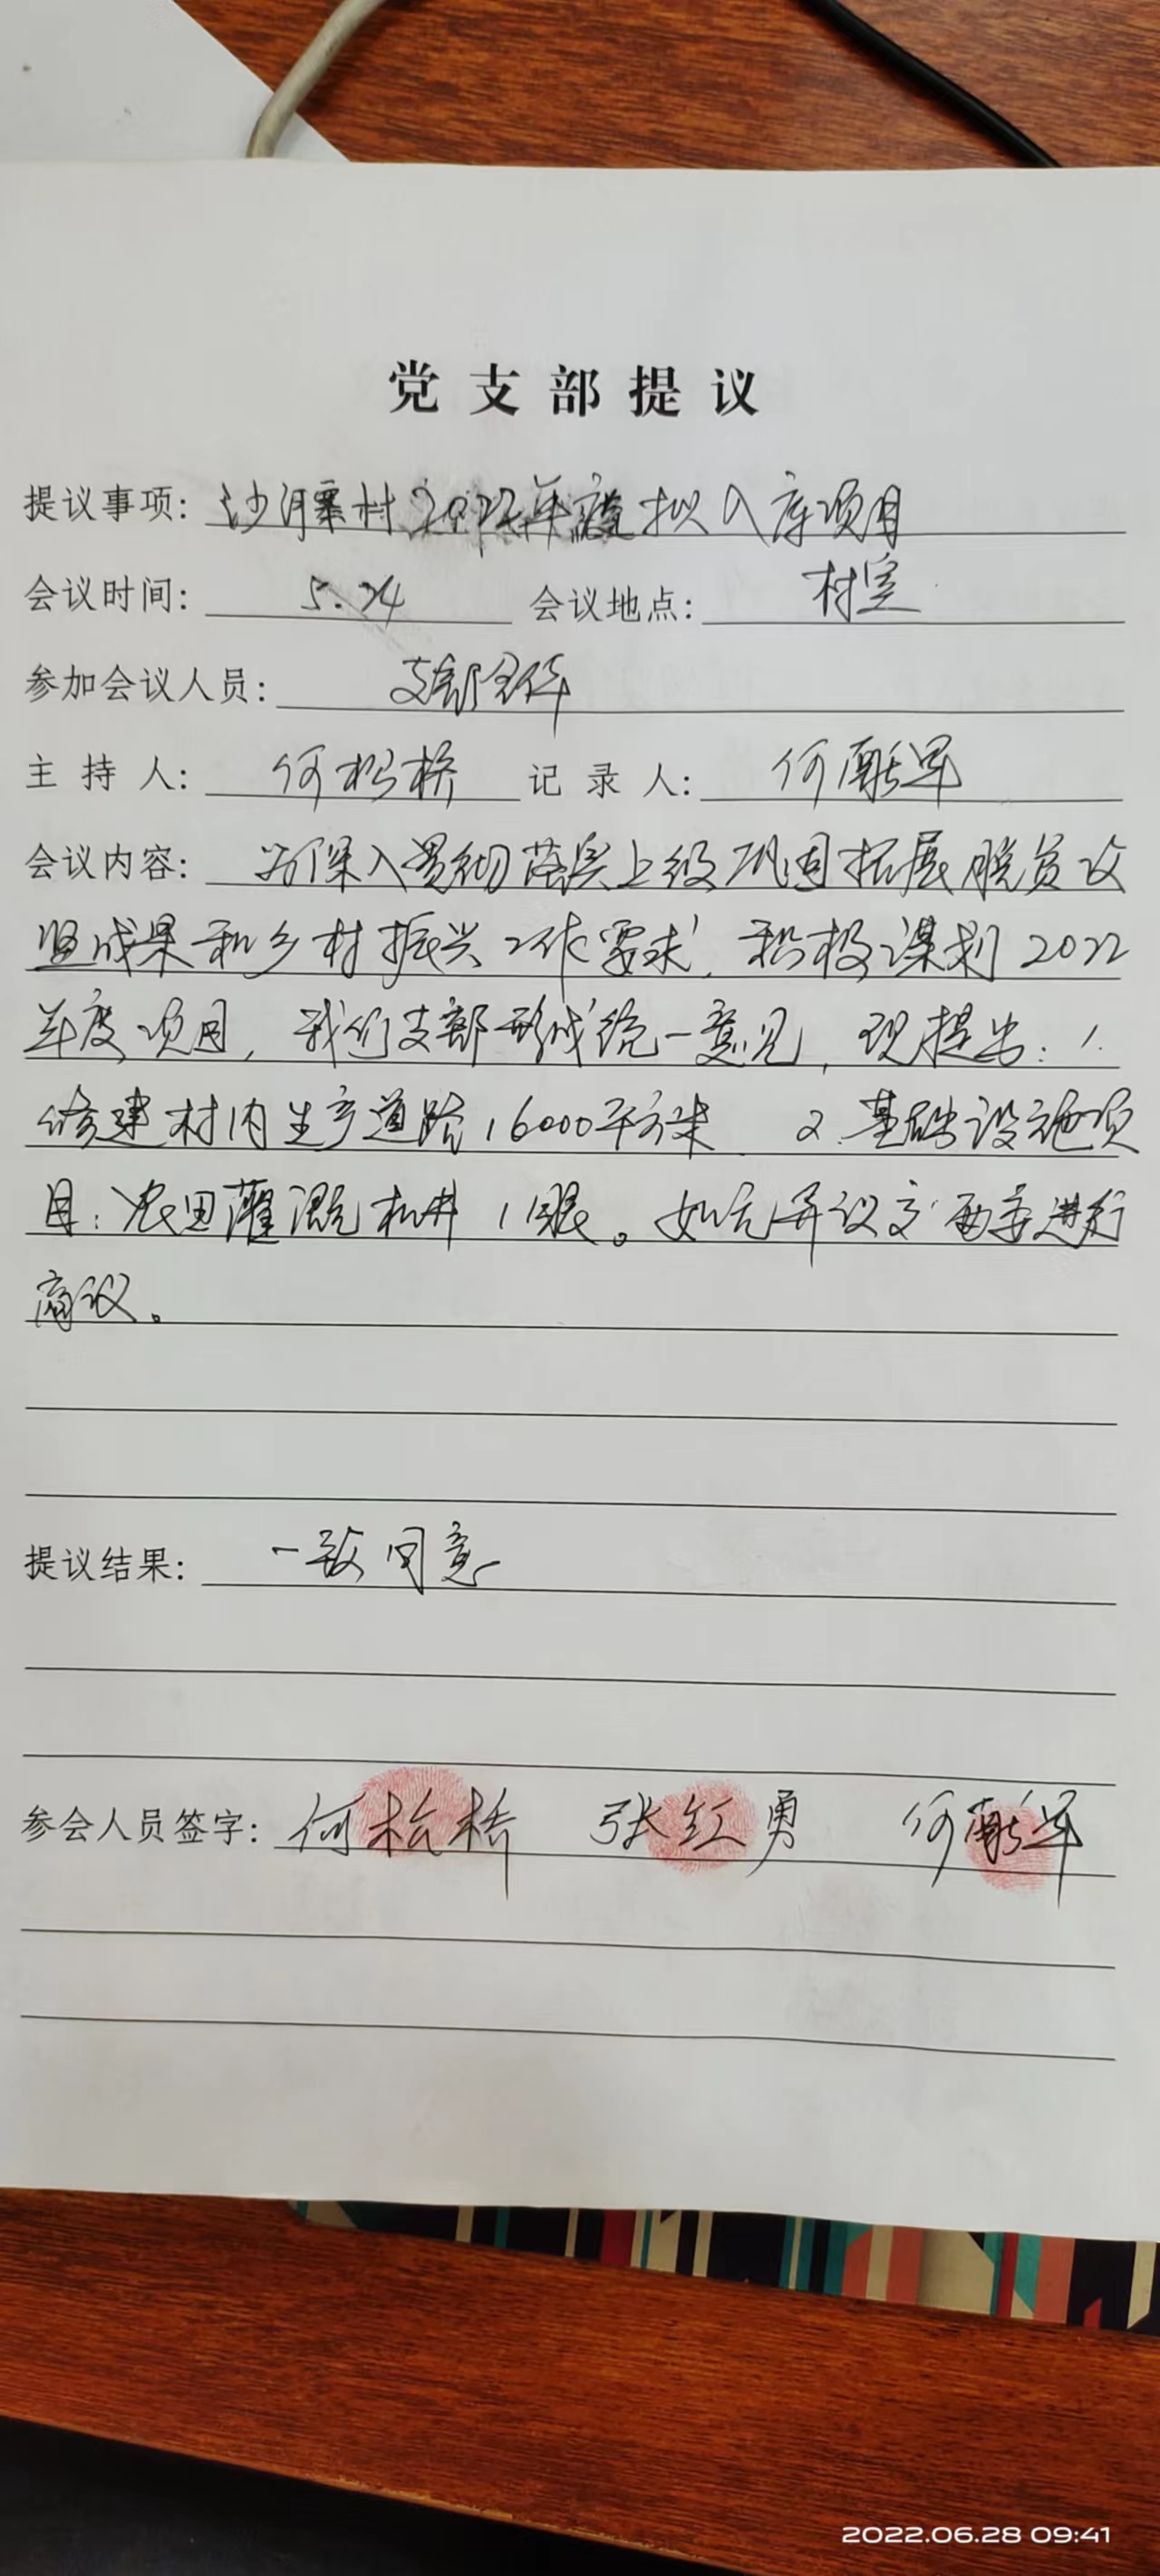 党支部提议
提议事项: 沙河寨村2022年度拟入库项目
会议时间: 5.24 会议地点: 村室
参加会议人员: 支部全体
主持人: 何松桥 记录人: 何献军
会议内容: 为深入贯彻落实上级巩固拓展脱贫攻
坚成果和乡村振兴工作要求, 积极谋划2022
年度项目, 我们支部形成统一意见, 现提出: 1.
修建村内生产道路16000平方米. 2.基础设施项
目: 农田灌溉机井11眼。如无异议交两委进行
商议。
提议结果: 一致同意
参会人员签字: 何松桥 张红勇 何献军
2022.06.28 09:41